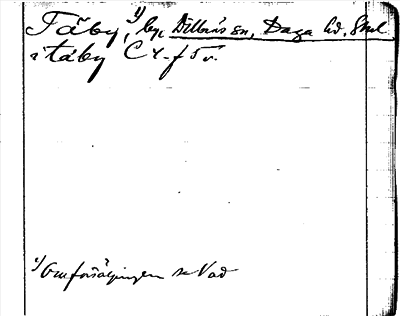 Täby, 1) by, Dillnäs sn, Daga hd, Söml.
i täby C 4 f 5 v.
1) Om försäljningen se Vad